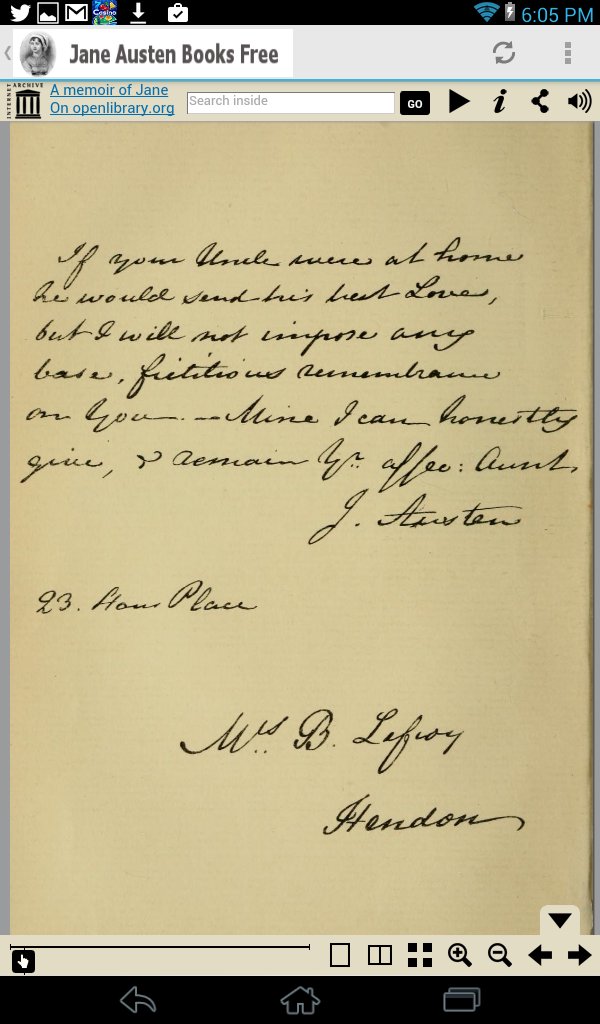 6:05 PM
Jane Austen Books Free
INTERNET ARCHIVE
A memoir of Jane
On openlibrary.org
Search inside
GO
If your Uncle were at home
he would send his best Love,
but I will not impose any
base, fictitious remembrance
on You. — Mine I can honestly
give, & remain Yr. affec: Aunt,
J. Austen
23. Hans Place
Mrs B. Lefroy
Hendon